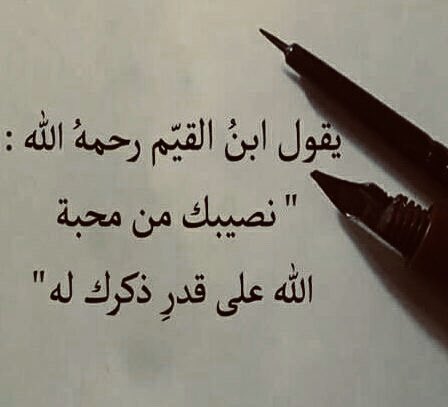 يقول ابنُ القيّم رحمهُ الله :
"نصيبك من محبة
الله على قدرِ ذكرك له"